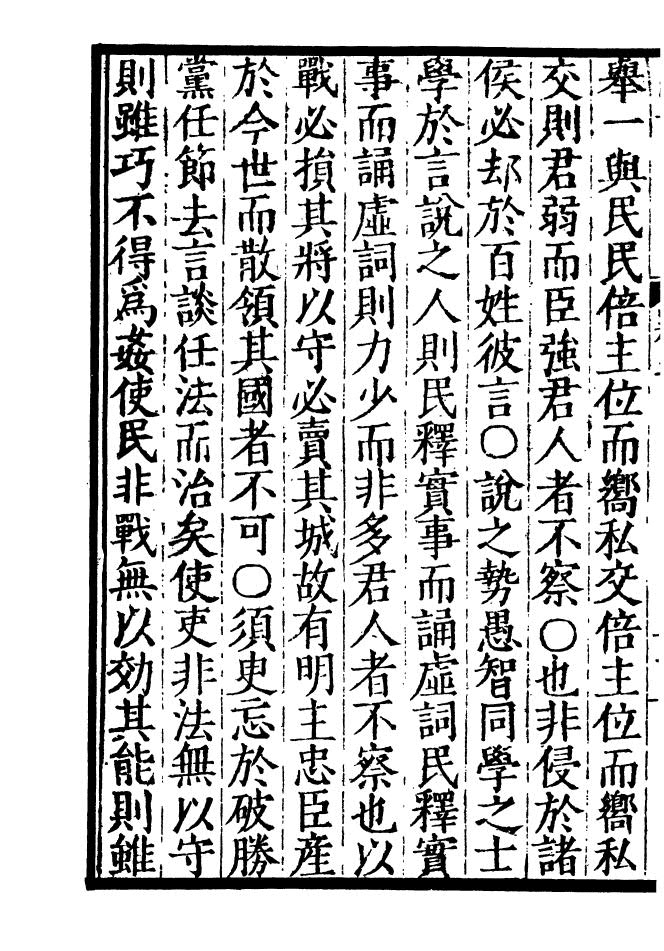 舉一與民民倍主位而嚮私交倍主位而嚮私
交則君弱而臣強君人者不察〇也非侵於諸
侯必却於百姓彼言〇說之勢愚智同學之士
學於言說之人則民釋實事而誦虛詞民釋實
事而誦虛詞則力少而非多君人者不察也以
戰必損其將以守必賣其城故有明主忠臣產
於今世而散領其國者不可〇須史忘於破勝
黨任節去言談任法而治矣使吏非法無以守
則雖巧不得爲姦使民非戰無以効其能則雖